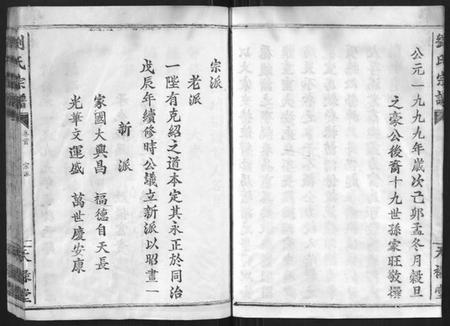 公元一九九九年歲次己卯孟冬月穀旦
之豪公後裔十九世孫家旺敬撰
宗派
老派
一陞有克紹之道本定其永正於同治
戊辰年續修時公議立新派以昭畫一
新派
家國大興昌 福德自天長
光華文運盛 萬世慶安康
劉氏宗譜
卷首
宗派
天祿堂
劉氏宗譜
天祿堂